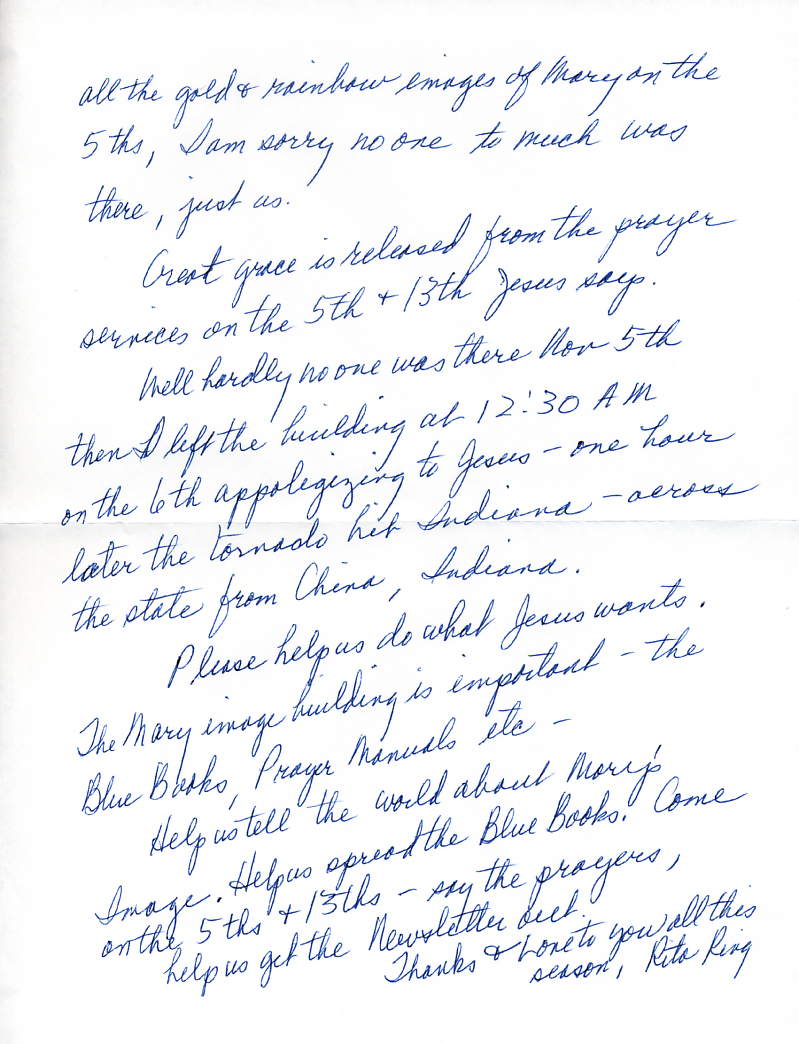 all the gold & rainbow images of Mary on the
5ths, I am sorry no one to much was
there, just us.
Great grace is released from the prayer
services on the 5th + 13th Jesus says.
Well hardly no one was there Nov 5th
then I left the building at 12:30 AM
on the 6th appoligizing to Jesus - one hour
later the tornado hit Indiana - across
the state from China, Indiana.
Please help us do what Jesus wants.
The Mary image building is important - the
Blue Books, Prayer Manuals etc -
Help us tell the world about Mary's
Image. Help us spread the Blue Books. Come
on the 5ths + 13ths - say the prayers,
help us get the Newsletter out.
Thanks & Love to you all this
season, Rita Ring